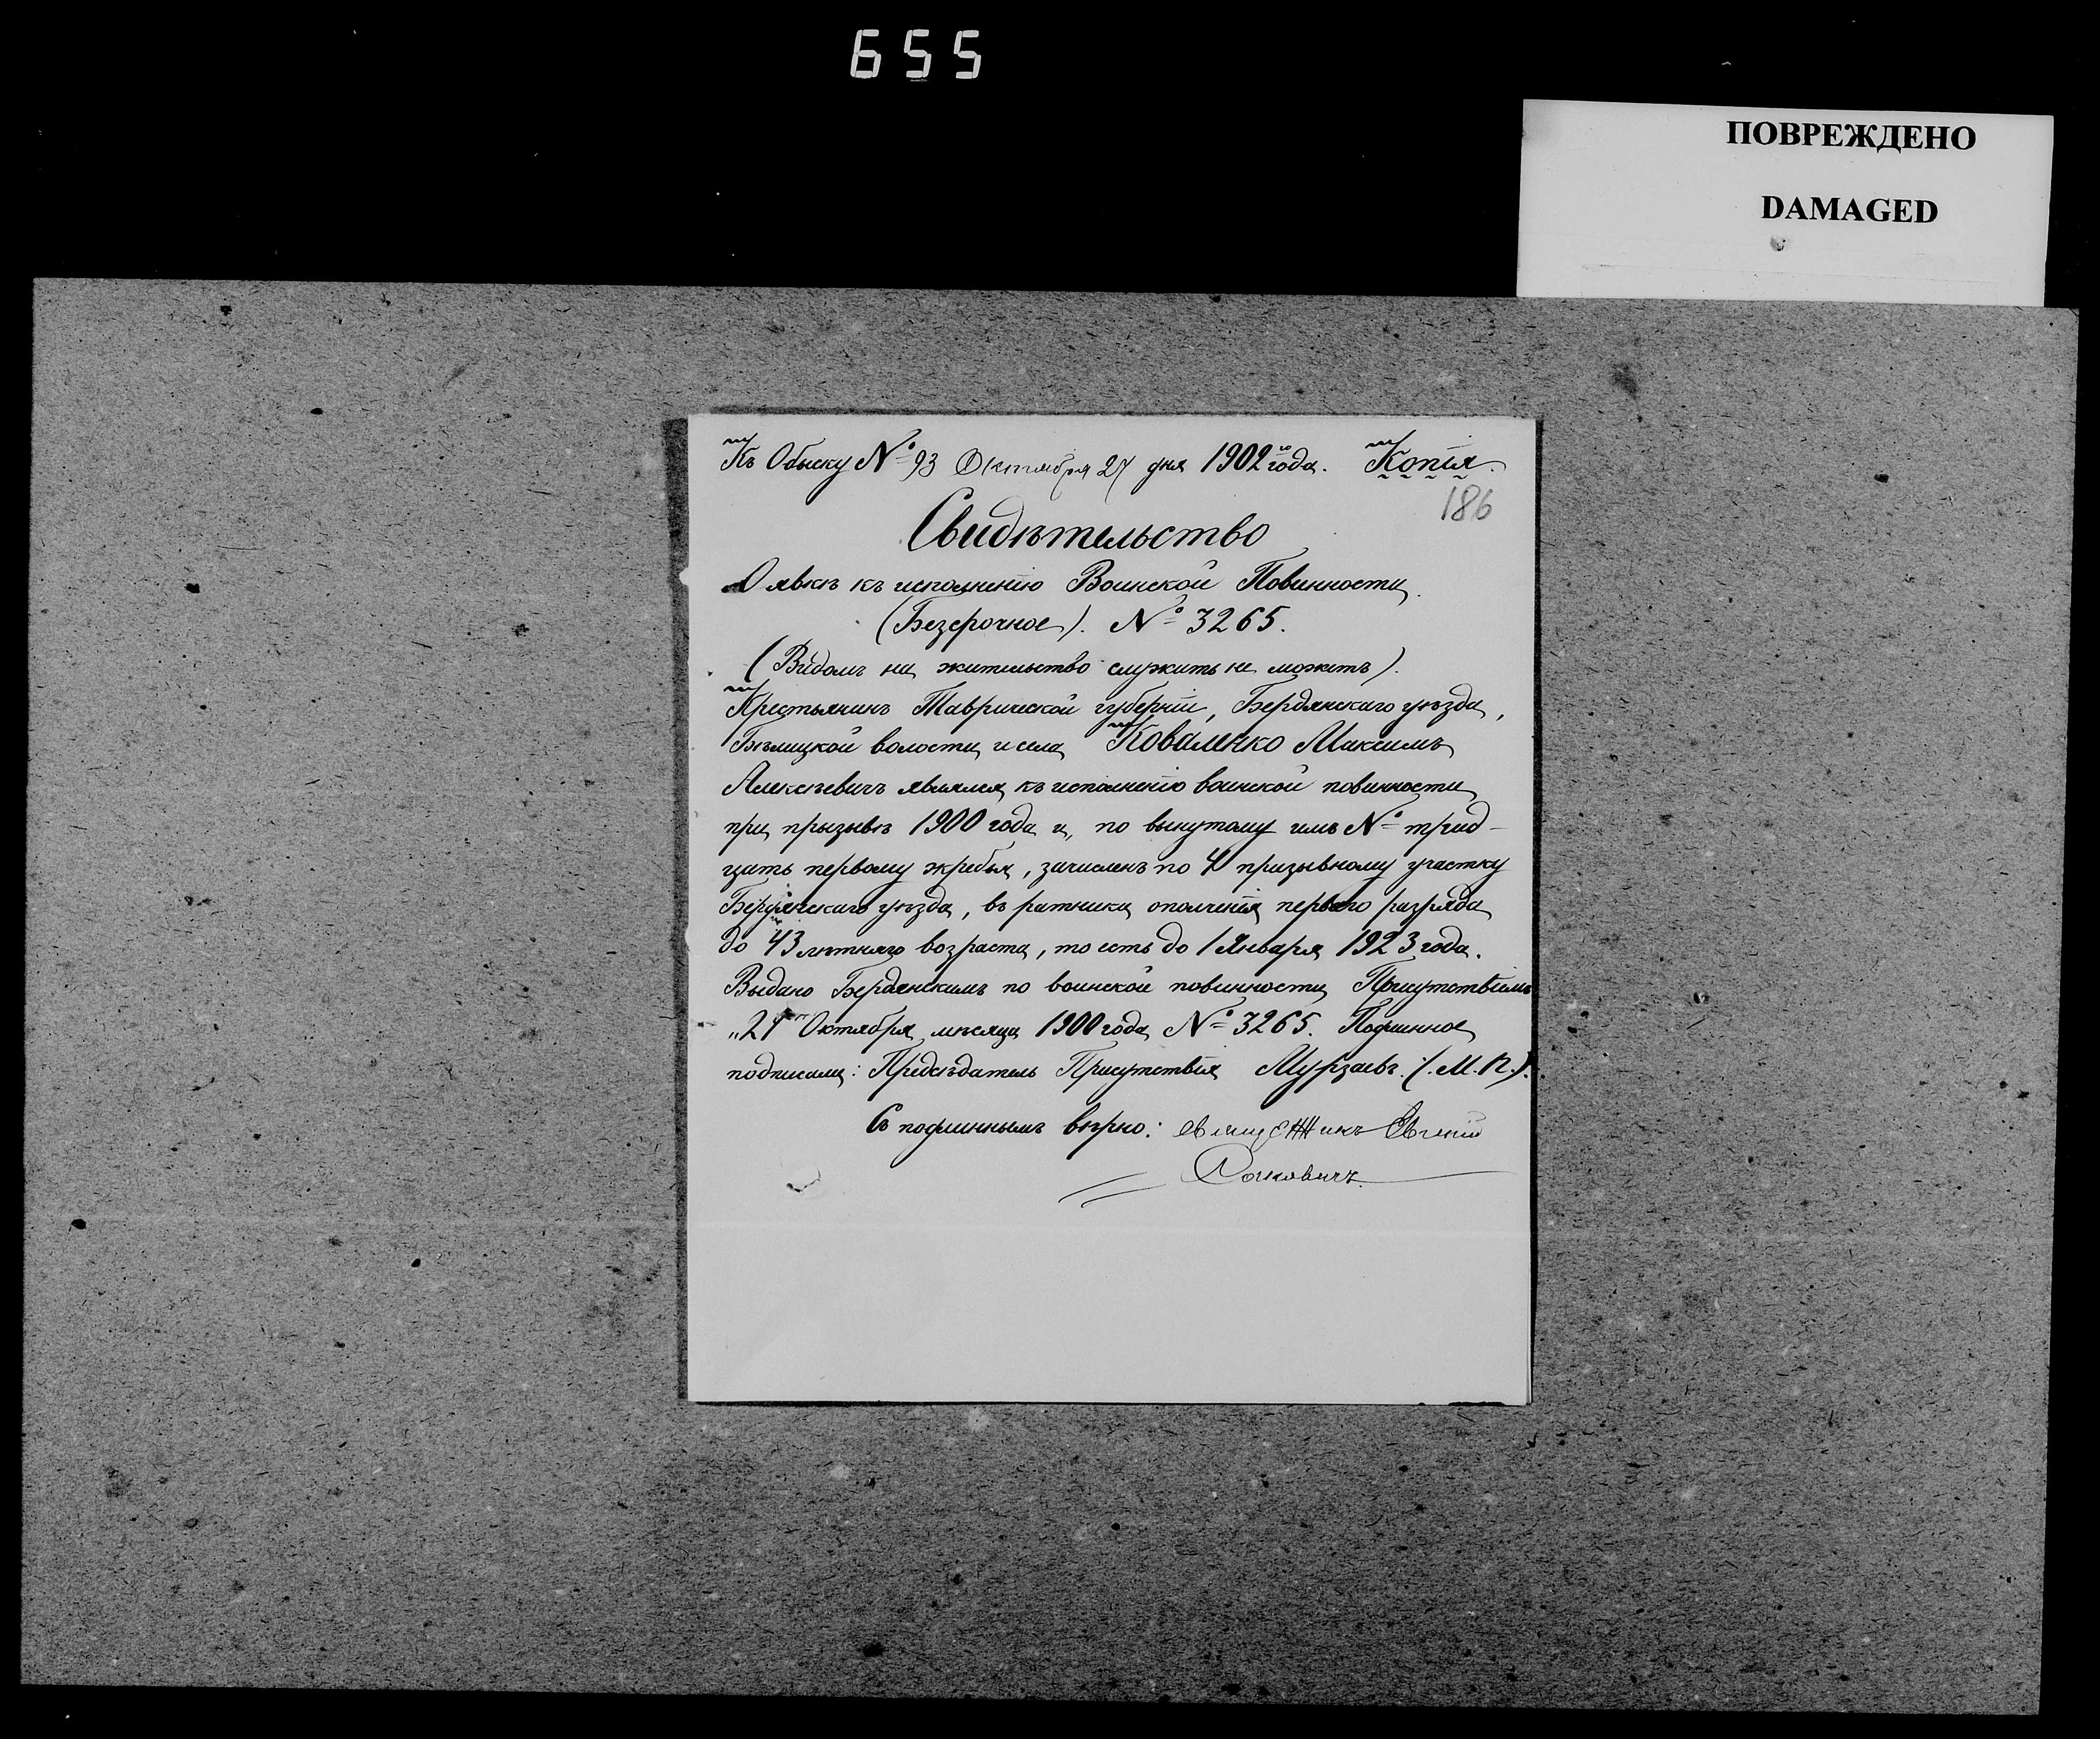 655
ПОВРЕЖДЕНО
DAMAGED
Къ Обыску № 93 Октября 27 дня 1902 го года. Копія.
186
Свидѣтельство
О явкѣ къ исполненію Воинской Повинности.
(Безсрочное). № 3265.
(Видомъ на жительство служить не можетъ).
Крестьянинъ Таврической губерніи, Бердянскаго уѣзда,
волости и села Коваленко Максимъ
Алексѣевичъ являлся къ исполненію воинской повинности
при призывѣ 1900 года и, по вынутому имъ № трид-
цать первому жребья, зачисленъ по 4 призывному участку
Бердянскаго уѣзда, въ ратники ополченія перваго разряда
до 43 лѣтняго возраста, то есть до 1 Января 1923 года.
Выдано Бердянскимъ по воинской повинности Присутствіемъ
Октября мѣсяца 1900 года № 3265. Подлинное
подписали: Предсѣдатель Присутствія Мурзаевъ. (.М.П.).
Съ подлиннымъ вѣрно: священникъ Евгеній